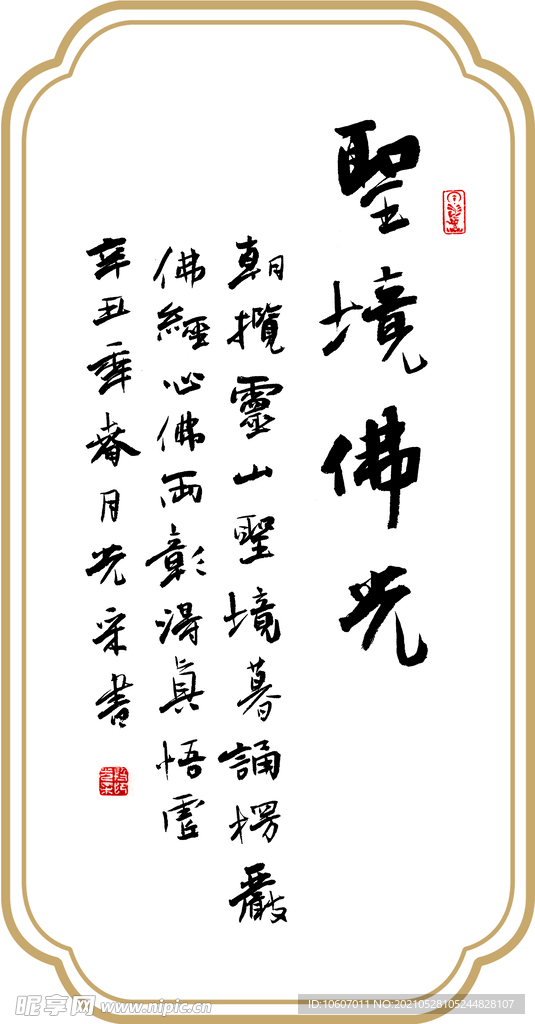 聖境佛光
朝攬靈山聖境暮誦楞嚴
佛經心佛兩彰得真悟虛
辛丑年春月光采書
昵享网 www.nipic.cn
ID:10607011 NO:20210528105244828107